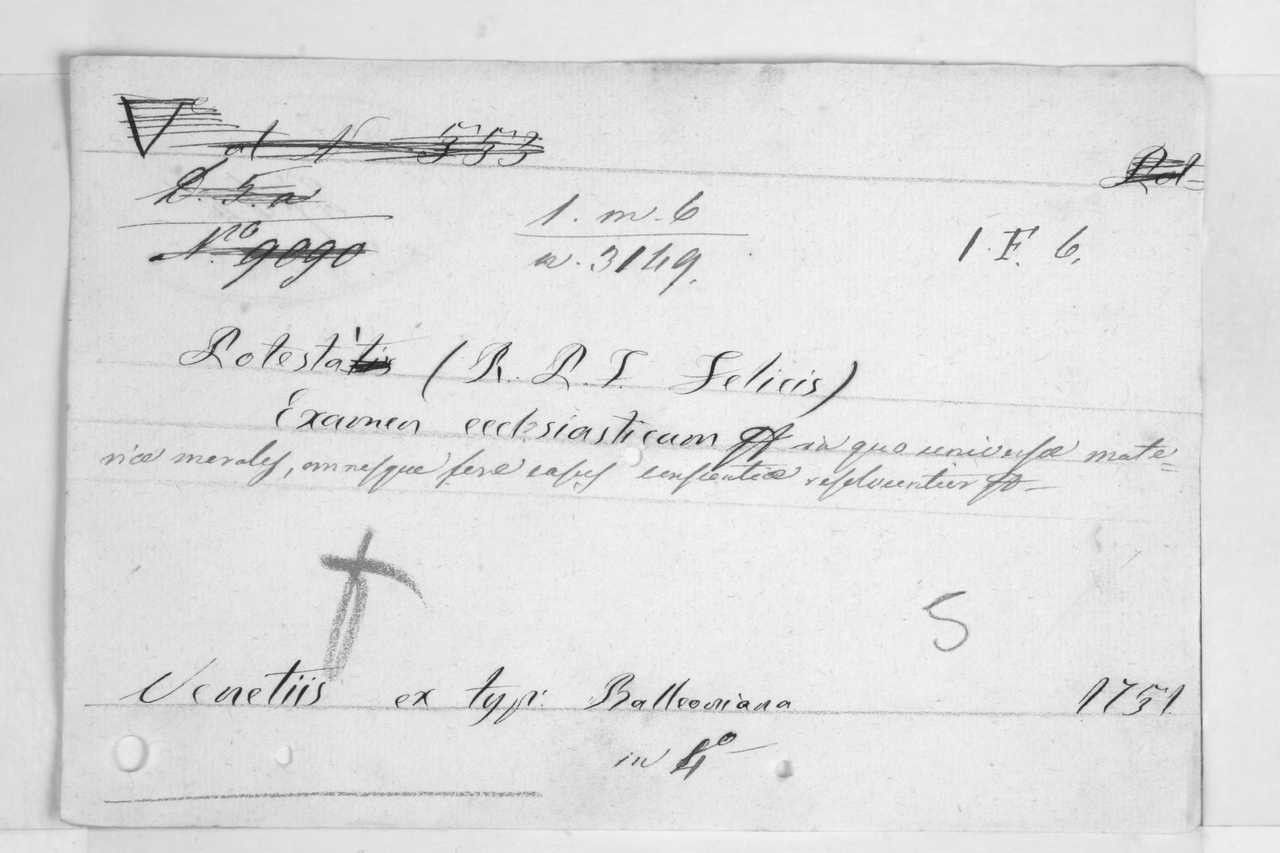 al N 353
Pot-
P. 5. a
N.ro 9090
1. m. 6
n. 3149.
1. F. 6.
Potestà (R. P. F. Felicis)
Examen ecclesiasticum in quo universæ mate=
riæ morales, omnesque fere casus conscientiæ resolvuntur
S
Venetiis ex typ: Balleoniana 1751
in 4º